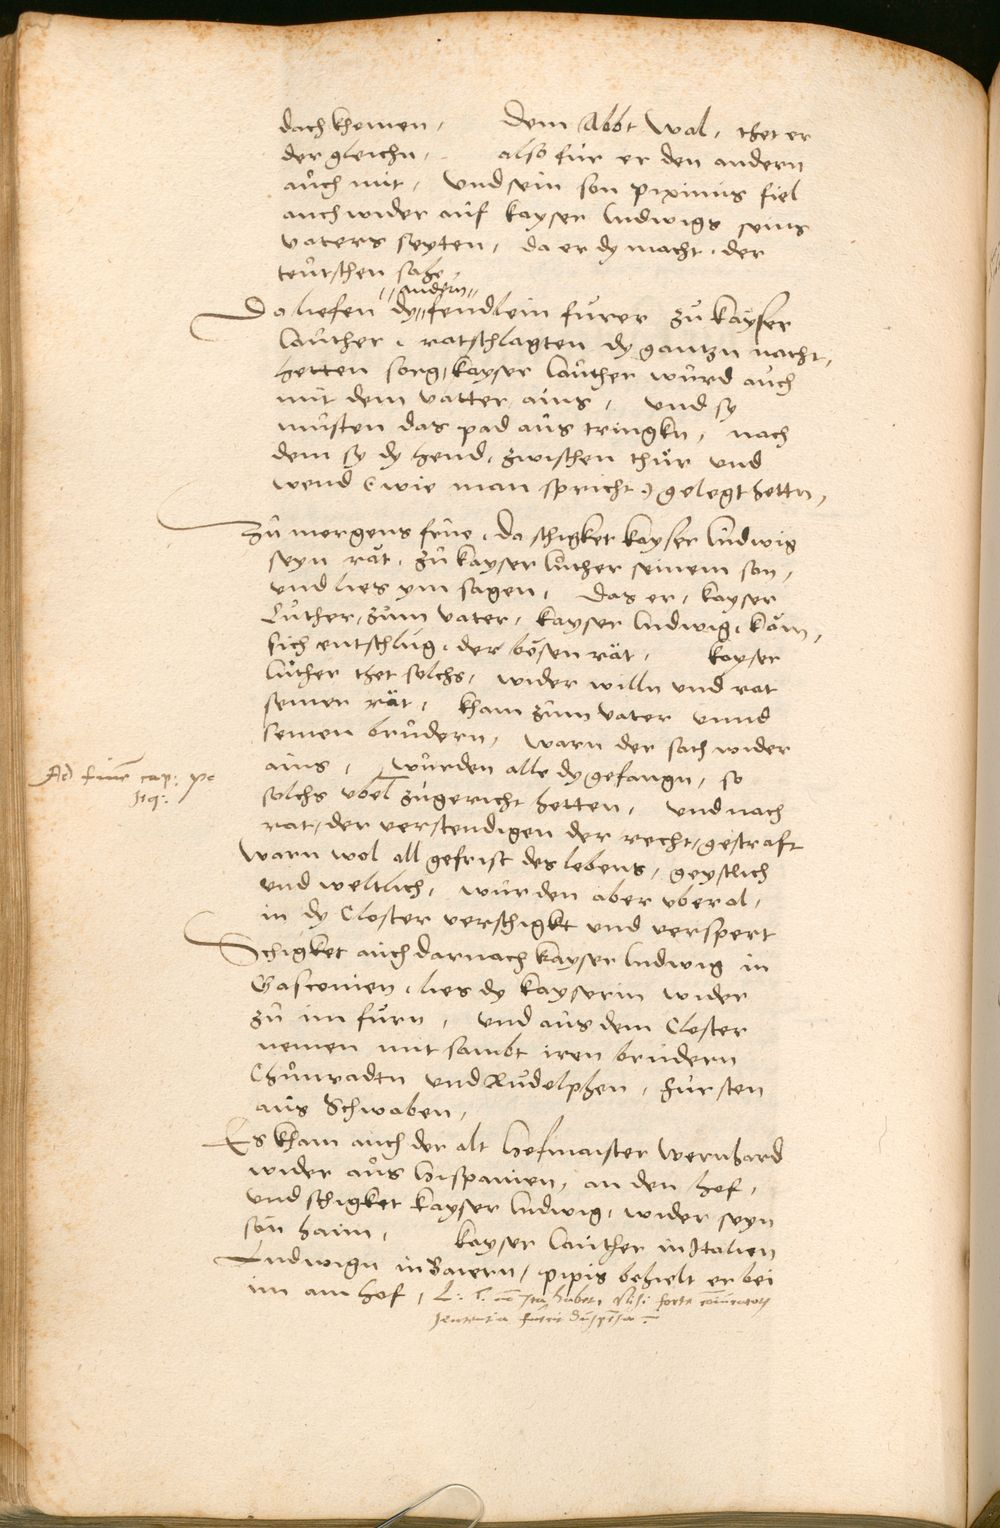 dach khomen, Dem Abbt Wal, thet er
der gleichn, also fur er den andern
auch mit, Und sein son pipinus fiel
auch wider auf kayser ludwigs seins
vaters seyten, da er dy macht, der
teutschen sahe,
andern
Da liefen dy fendlein furer zu kayser
lauther, ratschlagten dy gantzn nacht,
hetten sorg, kayser lauther wurd auch
mit dem vatter ains, Und sy
musten das pad aus tringkn, nach
dem sy dy hend, zwischen thur und
wend (wie man spricht) gelegt hettn,
Zu morgens frue, da schigket kayser ludwig
seyn rät, zu kayser luther seinem son,
und lies ym sagen, Das er, kayser
Luther, zum vater, kayser ludwig, käm,
sich entschlug, der bösen rät, kayser
luther thet solchs, wider willn und rat
seiner rät, kham zum vater unnd
seinen brudern, warn der sach wider
ains, Wurden alle dy gefangn, so
Ad finem cap:
solchs vbel zugericht hetten, Und nach
rat, der verstendigen der recht, gestraft
warn wol all gefrist des lebens, geystlich
und weltlich, wurden aber uberal,
in dy Closter verschigkt und verspert
Schigket auch darnach kayser ludwig in
Gasconien, lies dy kayserin wider
zu im furn, Und aus dem Closter
nemen mit sambt iren brudern
Chunradtn und Rudolphen, fursten
aus Schwaben,
Es kham auch der alt hofmaister Wernhard
wider aus hispanien, an den hof,
und schigket kayser ludwig, wider seyn
sön haim, kayser lauther in Italien
Ludwign in Baiern, pipis behielt er bei
im am hof, habet, Nisi forte
sententia fuerit